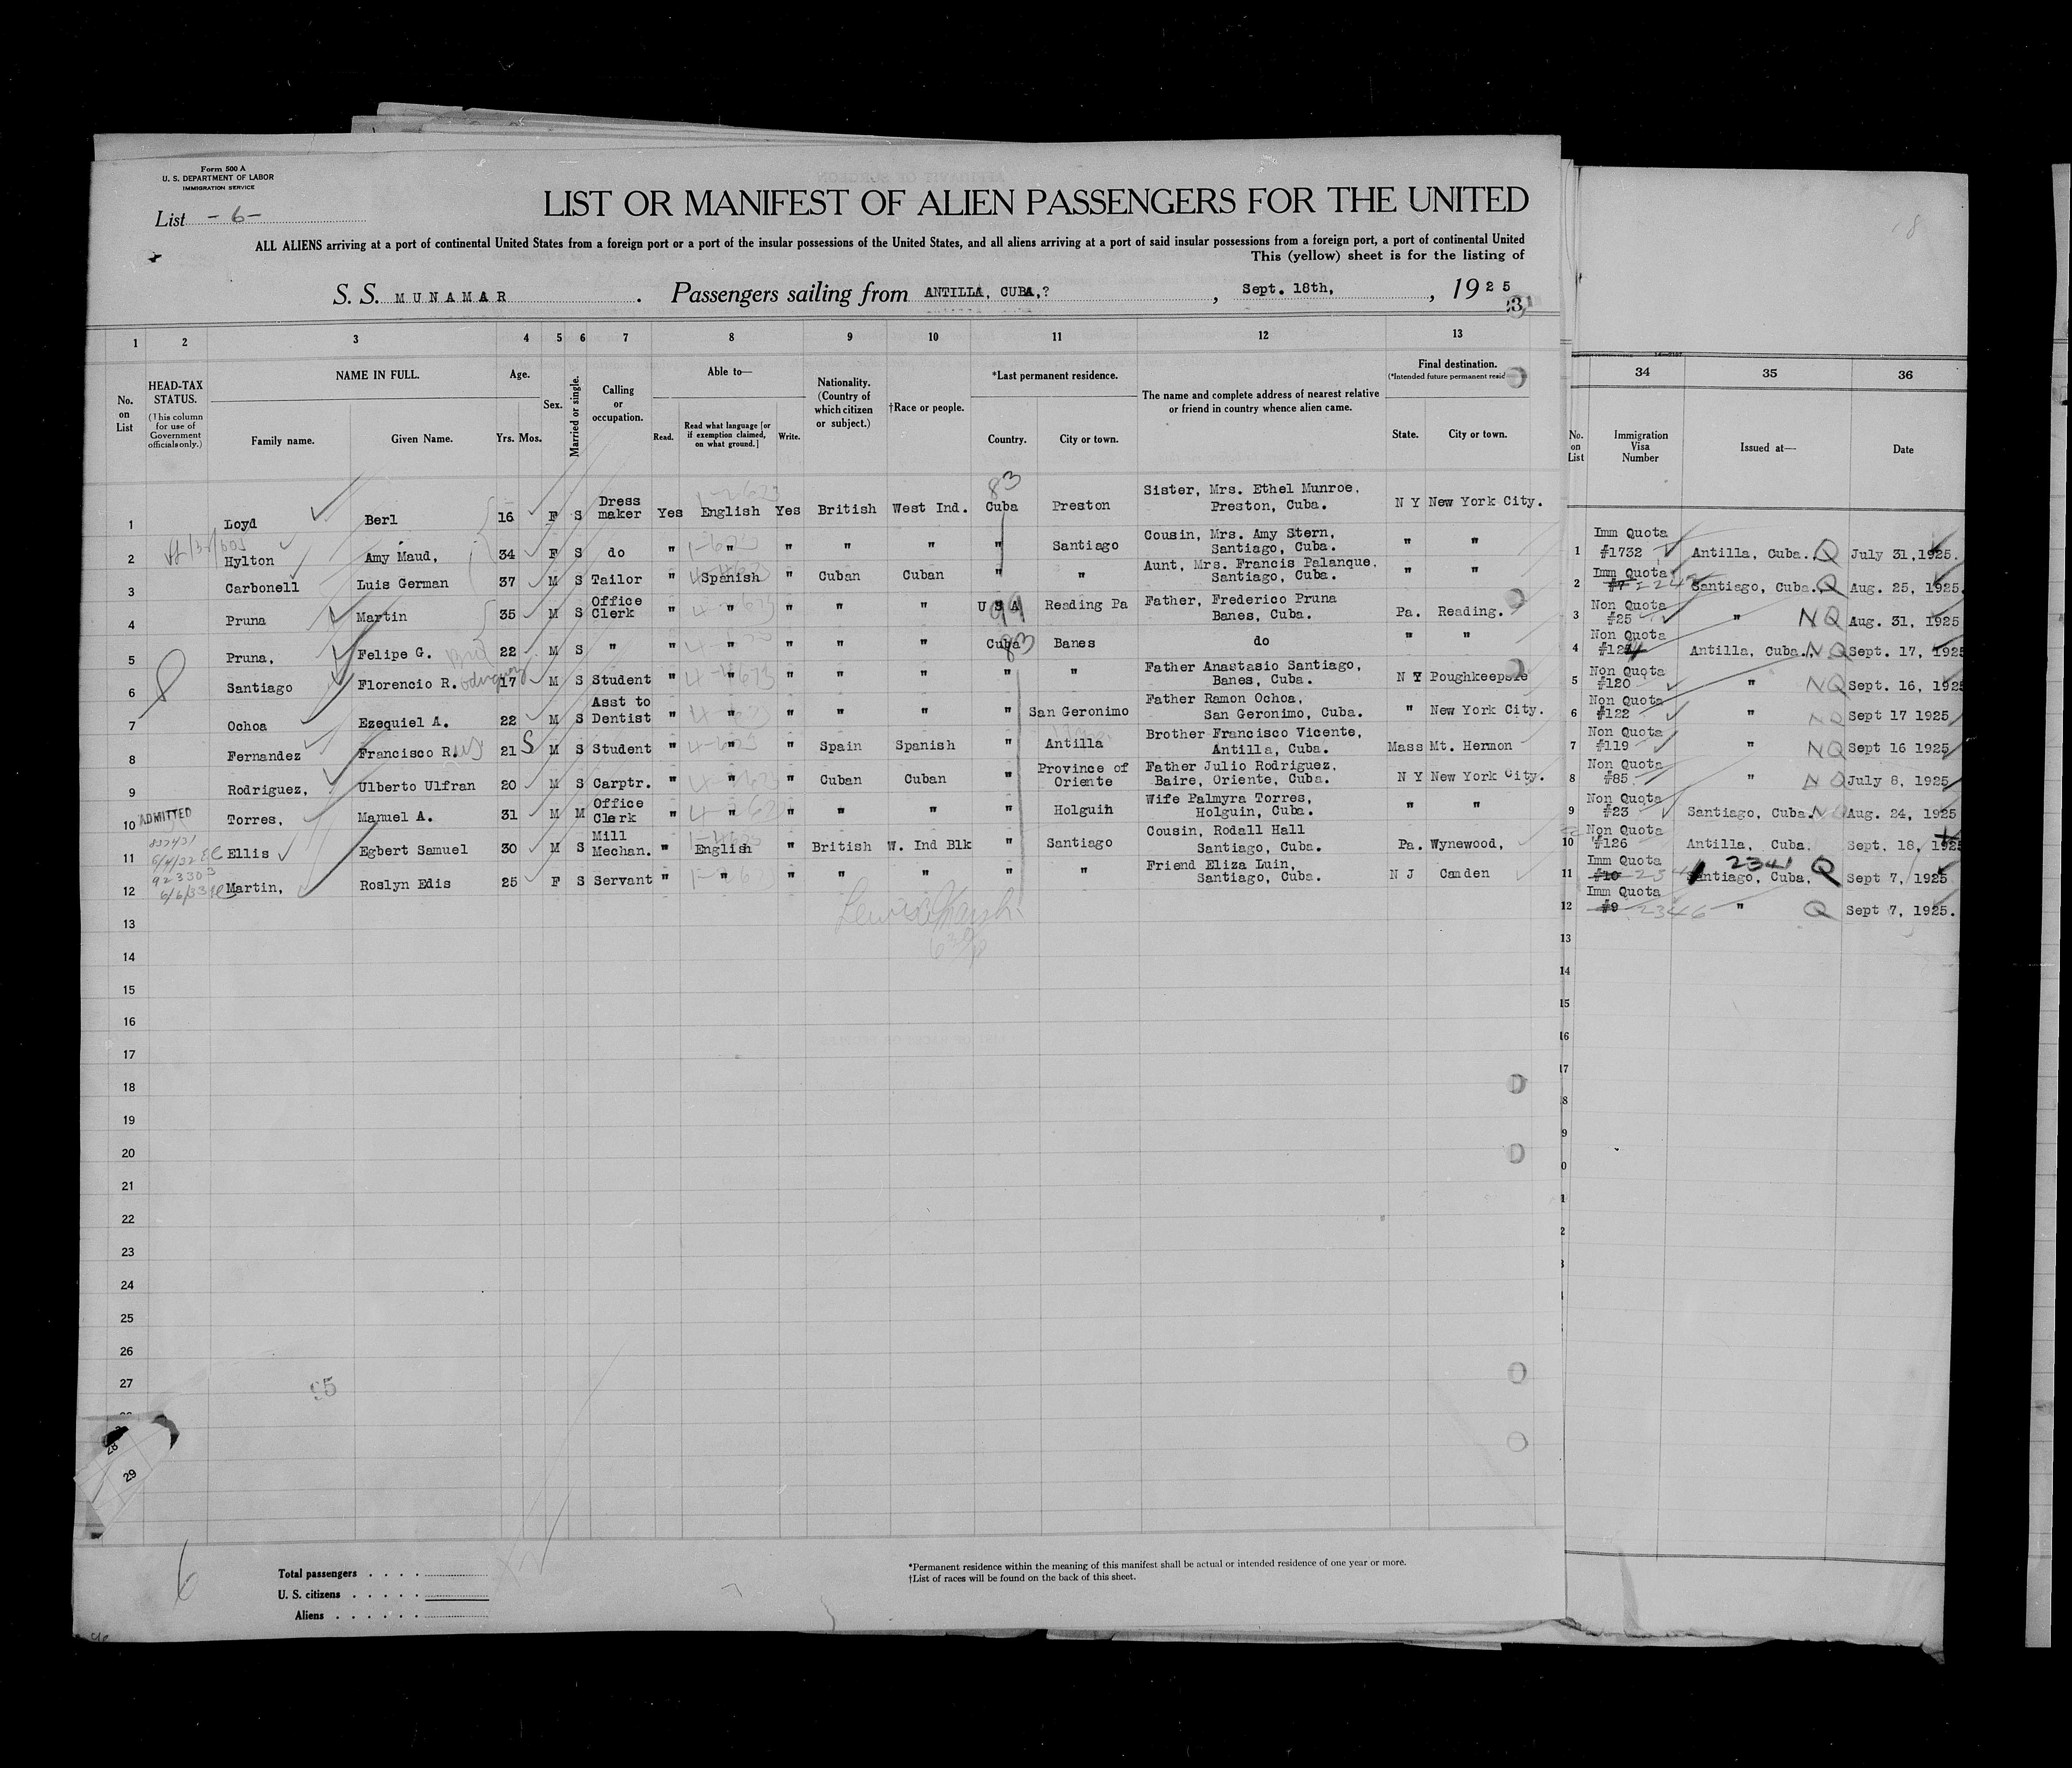 Form 500 A
U. S. DEPARTMENT OF LABOR
IMMIGRATION SERVICE
List - 6 -
LIST OR MANIFEST OF ALIEN PASSENGERS FOR THE UNITED
ALL ALIENS arriving at a port of continental United States from a foreign port or a port of the insular possessions of the United States, and all aliens arriving at a port of said insular possessions from a foreign port, a port of continental United
This (yellow) sheet is for the listing of
S. S. MUNAMAR . Passengers sailing from ANTILLA, CUBA,? , Sept. 18th, , 1925
1 2 3 4 5 6 7 8 9 10 11 12 13
No. on List
HEAD-TAX STATUS.
(This column for use of Government officials only.)
NAME IN FULL.
Family name. Given Name.
Age.
Yrs. Mos.
Sex.
Married or single.
Calling or occupation.
Able to—
Read. Read what language [or if exemption claimed, on what ground.] Write.
Nationality. (Country of which citizen or subject.)
†Race or people.
*Last permanent residence.
Country. City or town.
The name and complete address of nearest relative or friend in country whence alien came.
Final destination.
(*Intended future permanent resid
State. City or town.
83
1 Loyd Berl 16 F S Dress maker Yes English Yes British West Ind. Cuba Preston Sister, Mrs. Ethel Munroe, Preston, Cuba. N Y New York City.
2 Hylton Amy Maud, 34 F S do " " " " " " Santiago Cousin, Mrs. Amy Stern, Santiago, Cuba. " "
3 Carbonell Luis German 37 M S Tailor " Spanish " Cuban Cuban " " Aunt, Mrs. Francis Palanque, Santiago, Cuba. " "
4 Pruna Martin 35 M S Office Clerk " " " " " U S A Reading Pa Father, Frederico Pruna Banes, Cuba. Pa. Reading.
5 Pruna, Felipe G. 22 M S " " " " " " Cuba Banes do " "
6 Santiago Florencio R. 17 M S Student " " " " " " " Father Anastasio Santiago, Banes, Cuba. N Y Poughkeepsie
7 Ochoa Ezequiel A. 22 M S Asst to Dentist " " " " " " San Geronimo Father Ramon Ochoa, San Geronimo, Cuba. " New York City.
8 Fernandez Francisco R. 21 M S Student " " " Spain Spanish " Antilla Brother Francisco Vicente, Antilla, Cuba. Mass Mt. Hermon
9 Rodriguez, Ulberto Ulfran 20 M S Carptr. " " " Cuban Cuban " Province of Oriente Father Julio Rodriguez, Baire, Oriente, Cuba. N Y New York City.
10 ADMITTED Torres, Manuel A. 31 M M Office Clerk " " " " " " Holguin Wife Palmyra Torres, Holguin, Cuba. " "
11 Ellis Egbert Samuel 30 M S Mill Mechan. " English " British W. Ind Blk " Santiago Cousin, Rodall Hall Santiago, Cuba. Pa. Wynewood,
12 Martin, Roslyn Edis 25 F S Servant " " " " " " " Friend Eliza Luin, Santiago, Cuba. N J Camden
13
14
15
16
17
18
19
20
21
22
23
24
25
26
27
28
29
95
6
Total passengers
U. S. citizens
Aliens
*Permanent residence within the meaning of this manifest shall be actual or intended residence of one year or more.
†List of races will be found on the back of this sheet.
34 35 36
No. on List
Immigration Visa Number
Issued at—
Date
1 Imm Quota #1732 Antilla, Cuba. Q July 31, 1925.
2 Imm Quota Santiago, Cuba. Q Aug. 25, 1925.
3 Non Quota #25 " NQ Aug. 31, 1925
4 Non Quota Antilla, Cuba. NQ Sept. 17, 1925
5 Non Quota #120 " NQ Sept. 16, 192
6 Non Quota #122 " NQ Sept 17 1925
7 Non Quota #119 " NQ Sept 16 1925
8 Non Quota #85 " NQ July 8, 1925
9 Non Quota #23 Santiago, Cuba. NQ Aug. 24, 1925
10 Non Quota #126 Antilla, Cuba. Sept. 18, 192
11 Imm Quota #10 2341 Santiago, Cuba. Q Sept 7, 1925
12 Imm Quota #9 2346 " Q Sept 7, 1925.
13
14
15
16
17